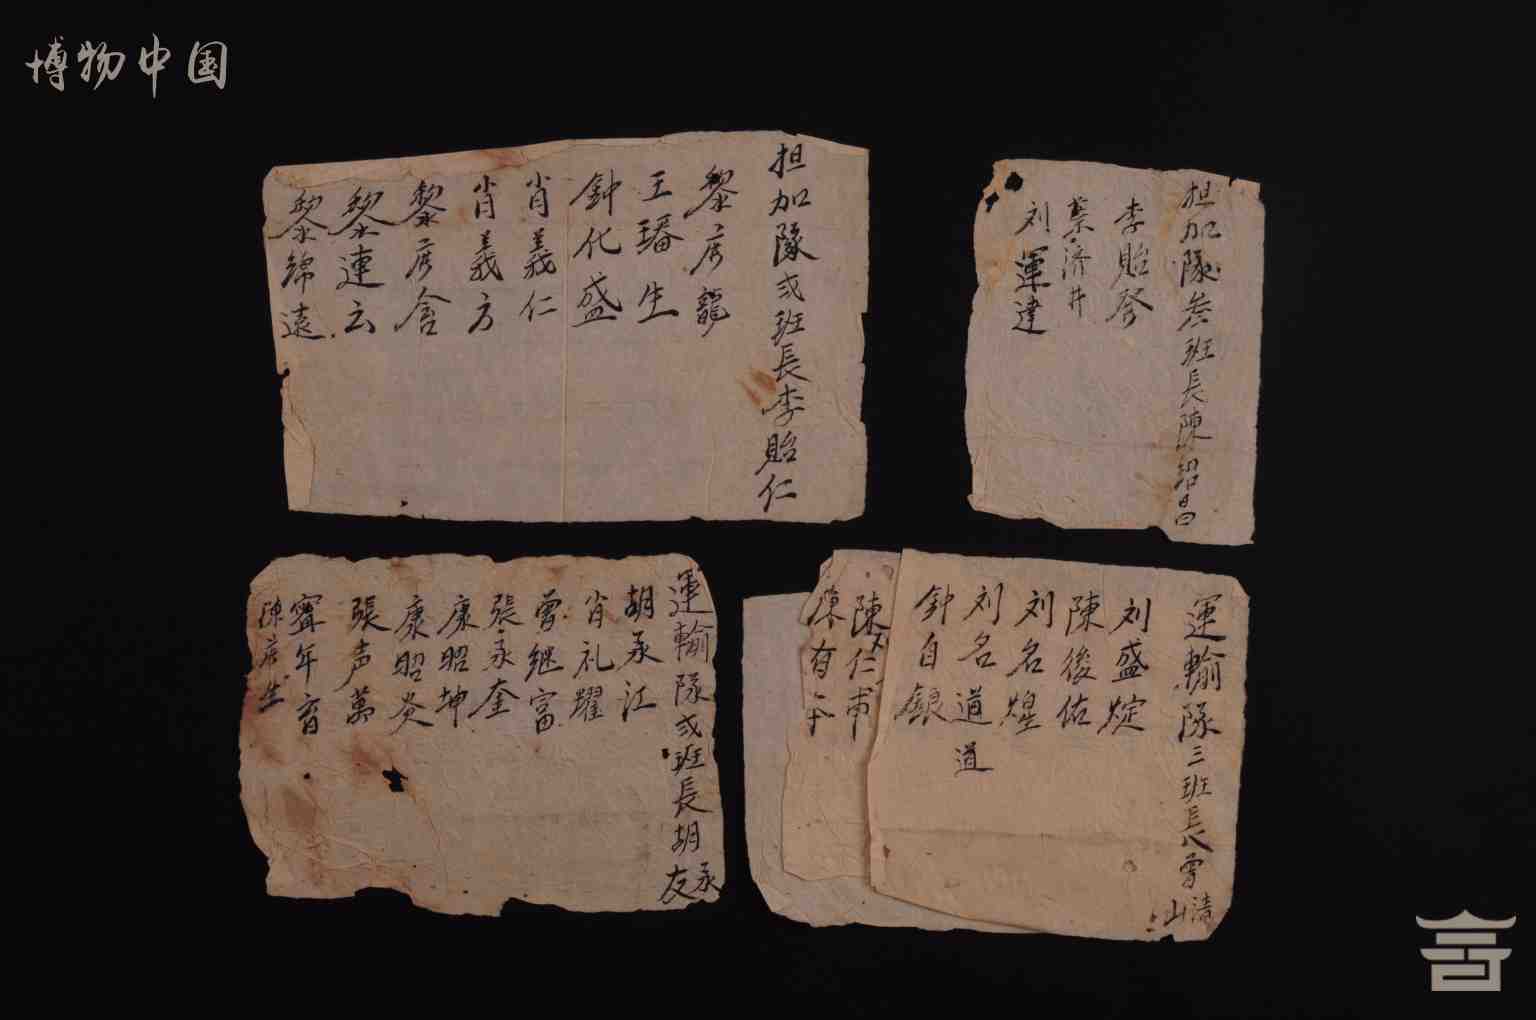 博物中国
担加隊弍班長李貽仁
黎彦龍
王璠生
鈡化盛
肖義仁
肖義方
黎彦含
黎連云
黎錦遠
担加隊叁班長陳紹昌
李貽琴
蔡済井
刘運達
運輸隊弍班長胡承友
胡承江
肖礼耀
曾继富
張永奎
康昭坤
康昭炎
張声萬
寗年育
陳彦生
運輸隊三班長曾清山
刘盛炡
陳後佑
刘名煌
刘名道道
鈡自銀
陳仁甫
陳有本